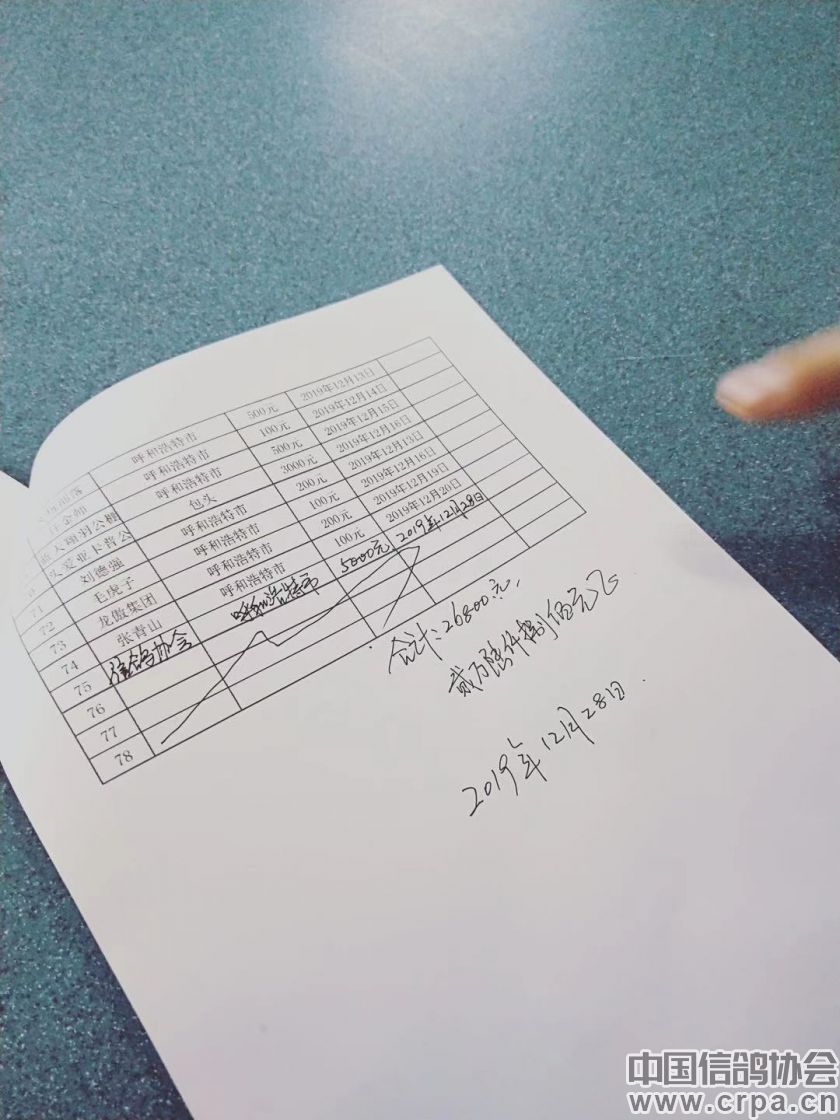 部落 呼和浩特市 500元 2019年12月13日
呼和浩特市 100元 2019年12月14日
天翔羽公棚 呼和浩特市 500元 2019年12月15日
0 包头 3000元 2019年12月16日
71 刘德强 呼和浩特市 200元 2019年12月13日
72 毛虎子 呼和浩特市 100元 2019年12月16日
73 龙傲集团 呼和浩特市 200元 2019年12月19日
74 张青山 呼和浩特市 100元 2019年12月20日
75 信鸽协会 呼和浩特市 5000元 2019年12月28日
76
77
78
合计:26800元.
贰万陆仟捌佰元
2019年12月28日.
中国信鸽协会
www.crpa.cn